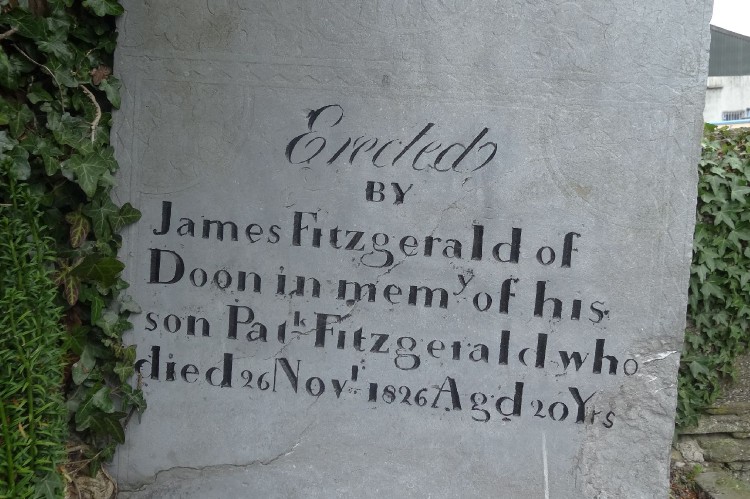 Erected
BY
James Fitzgerald of
Doon in memʸ of his
son Patᵏ Fitzgerald who
died 26 Novʳ 1826 Agd 20 Yrs